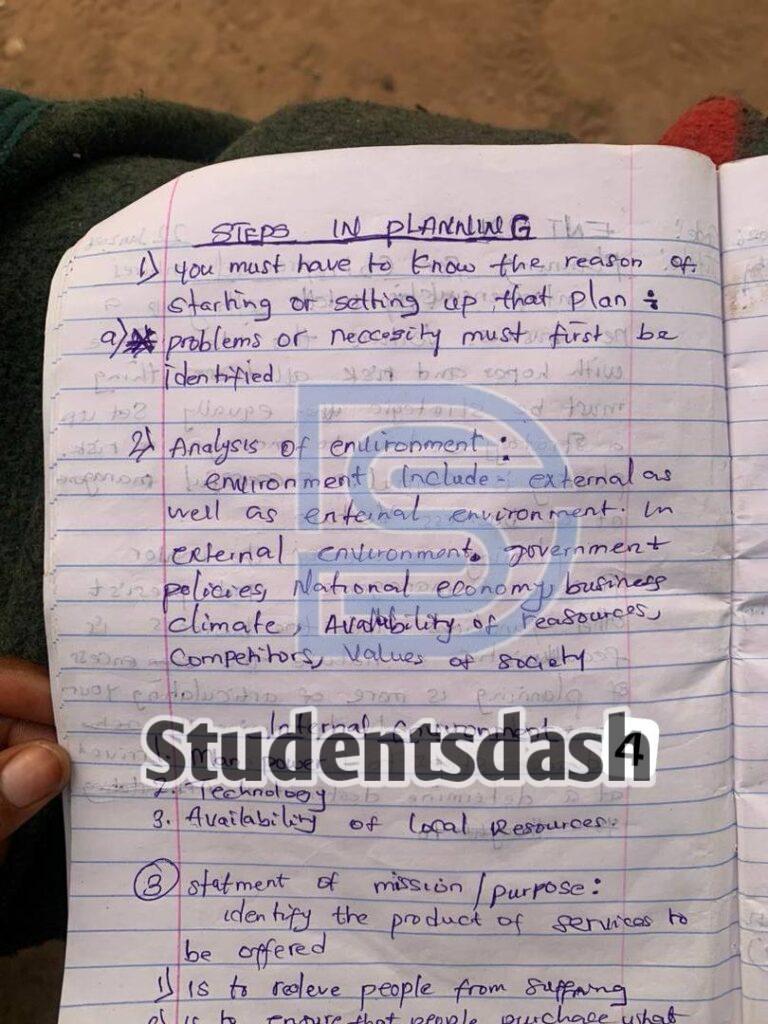 STEPS IN PLANNING
1) you must have to know the reason of
starting or setting up that plan :
a) problems or neccesity must first be
identified
2) Analysis of environment :
environment Include - external as
well as enternal environment. In
external environment, government
policies, National economy, business
climate, Availability of reasources,
Competitors, Values of society
Internal environment
Studentsdash
4
1. Man power
2. Technology
3. Availability of Local Resources.
3 statment of mission / purpose :
identify the product of services to
be offered
1) is to releve people from suffering
is to ensure that people purchace what